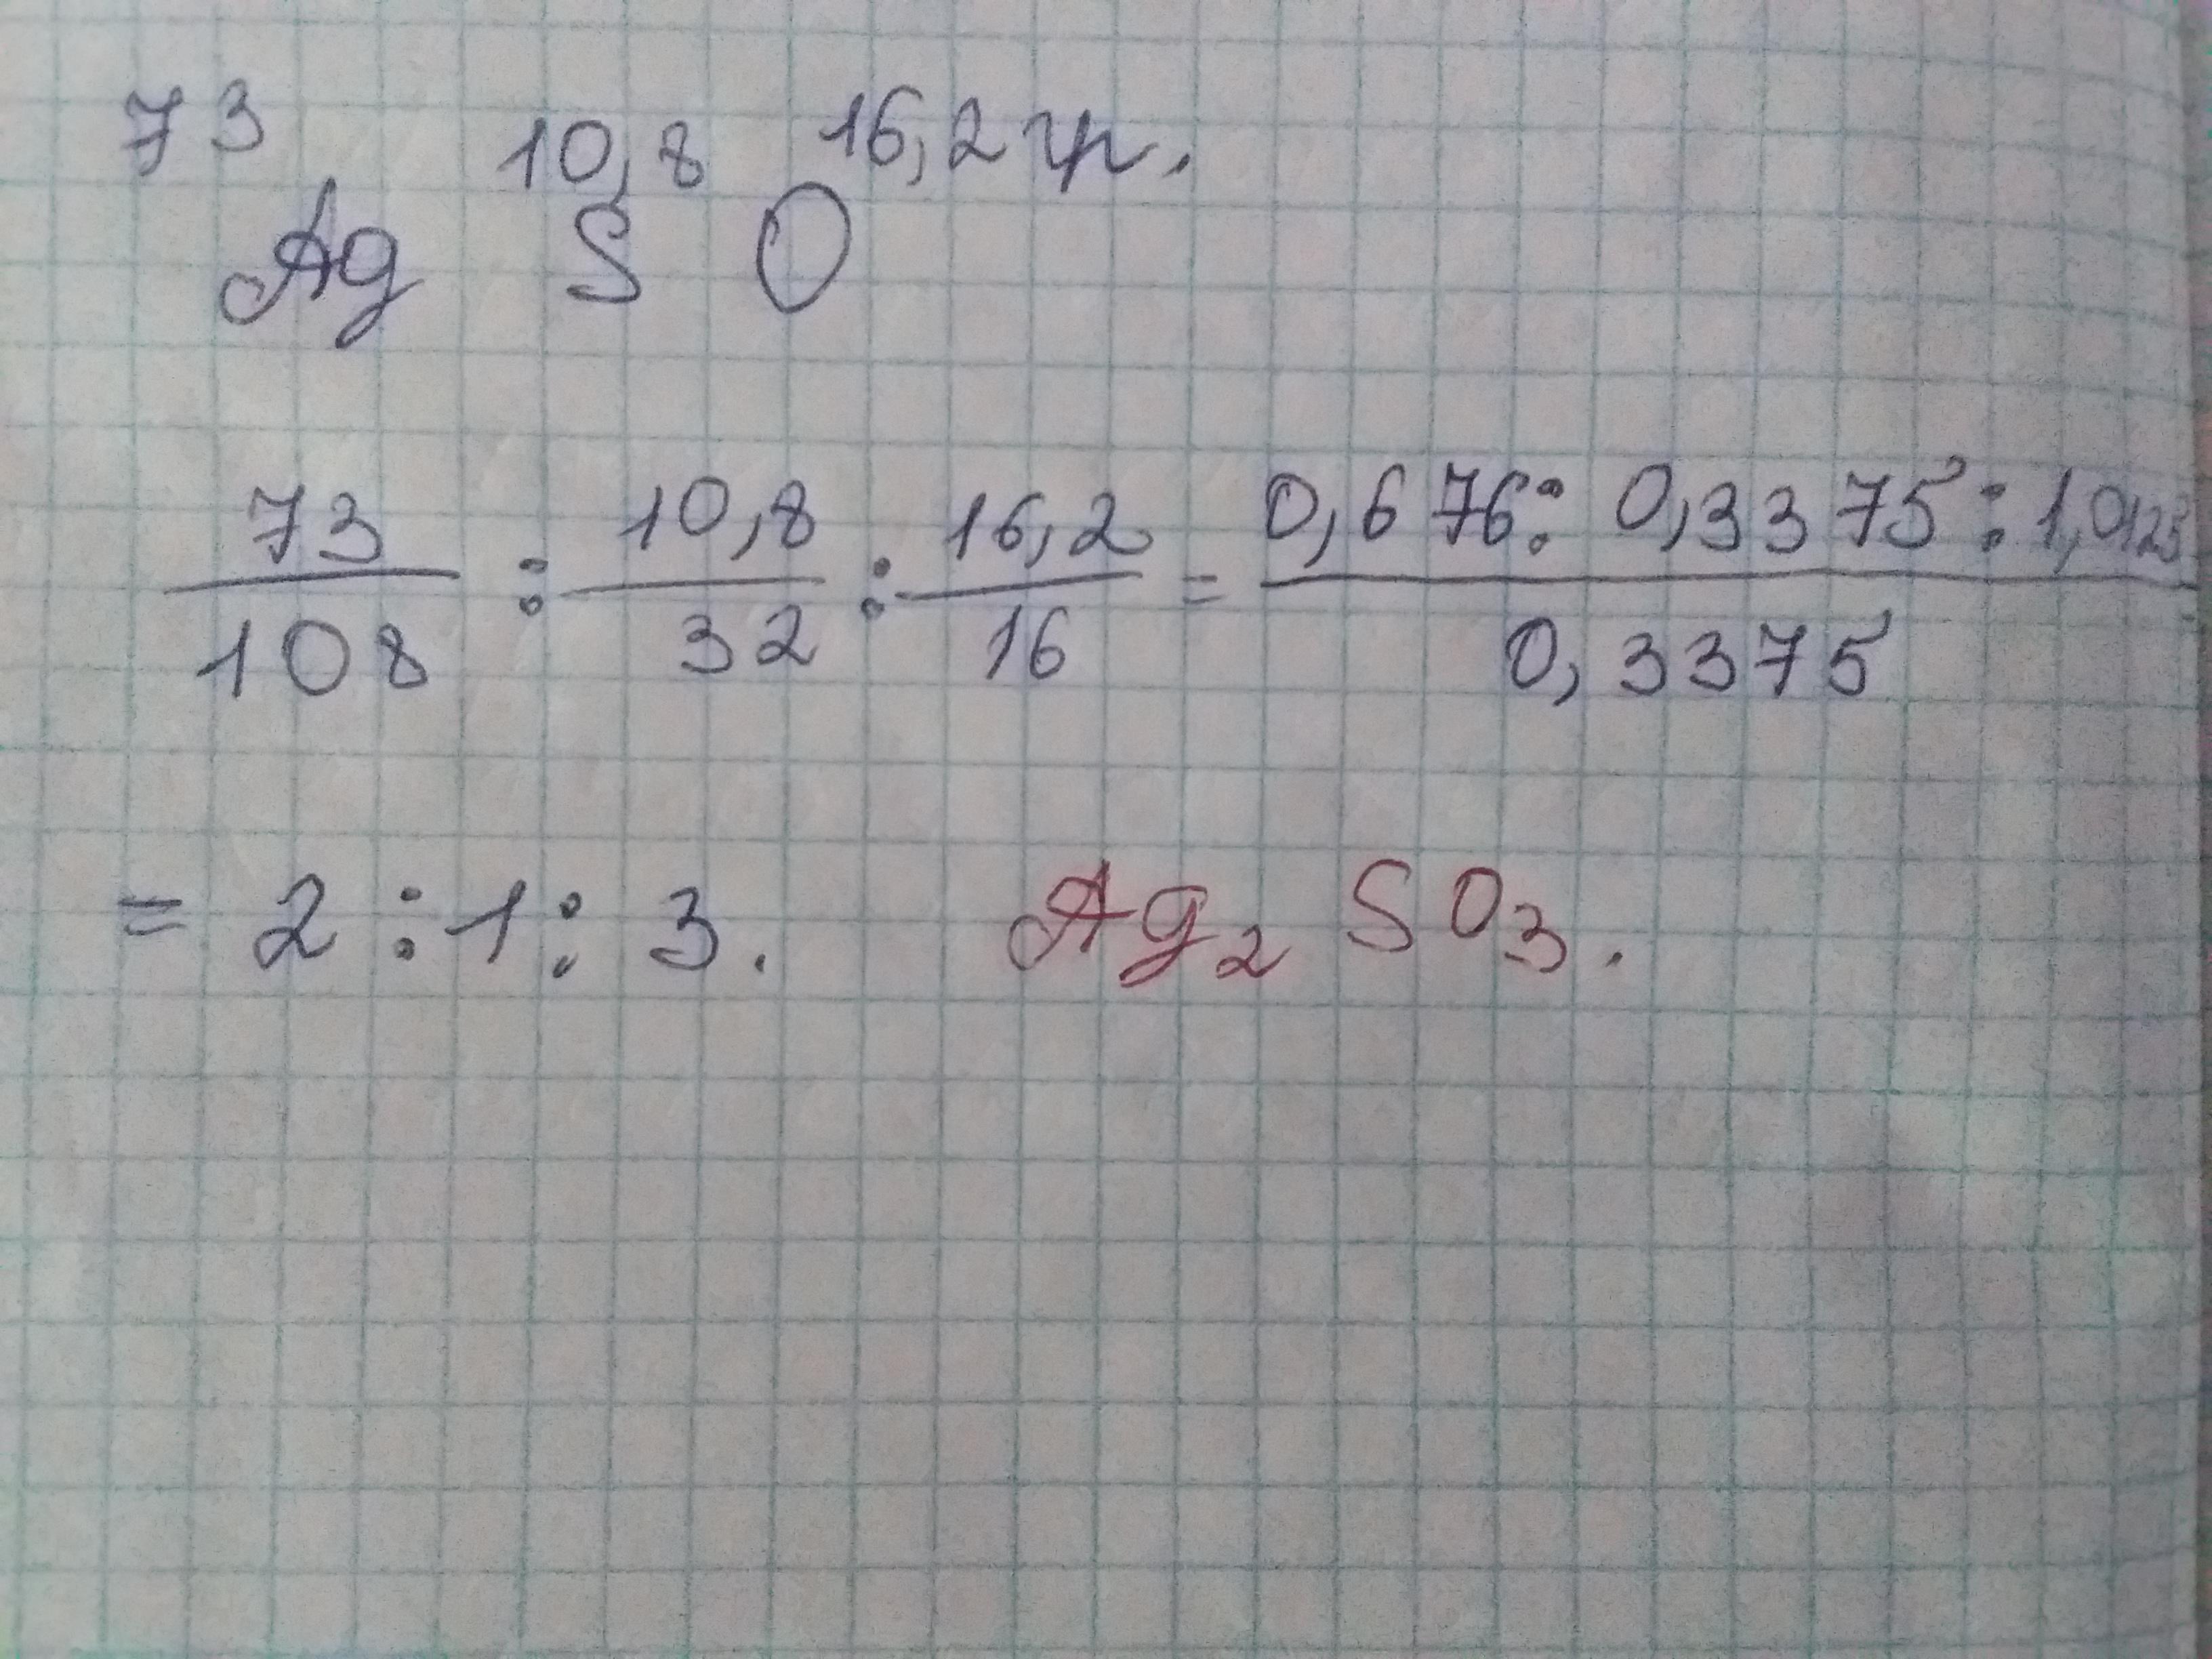 73 10,8 16,2 гр.
Ag S O
73/108 : 10,8/32 : 16,2/16 = 0,676 : 0,3375 : 1,0125 / 0,3375
= 2 : 1 : 3. Ag₂SO₃.